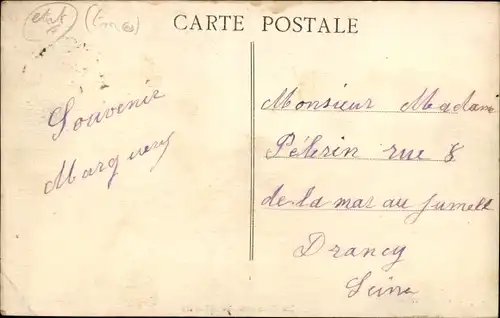 CARTE POSTALE
Souvenir
Monsieur Madam
Pélerin rue 8
de la mar au jumell
Drancy
Seine